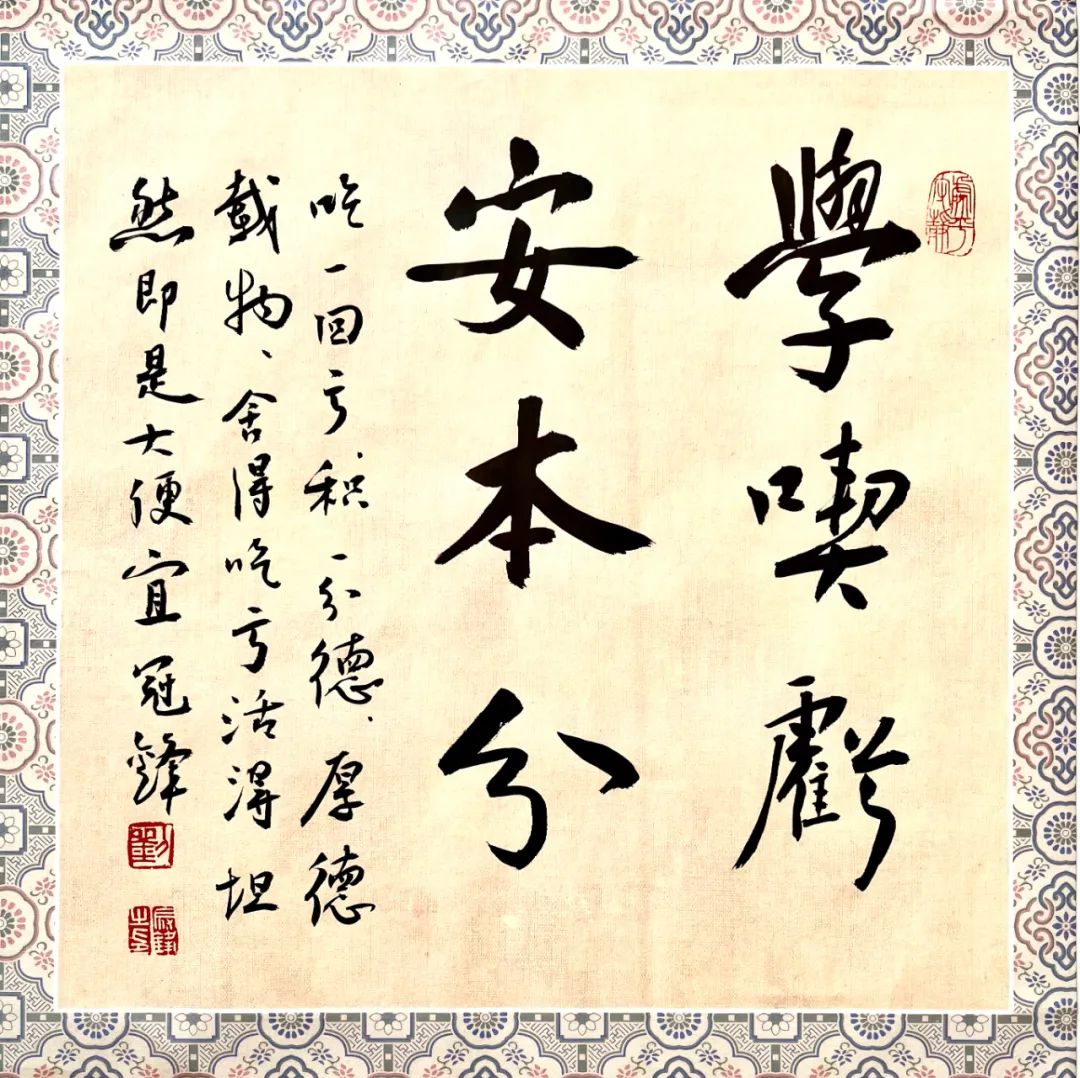 學喫虧
安本分
吃一回亏、积一分德、厚德
載物、舍得吃亏活得坦
然即是大便宜 冠鋒
劉